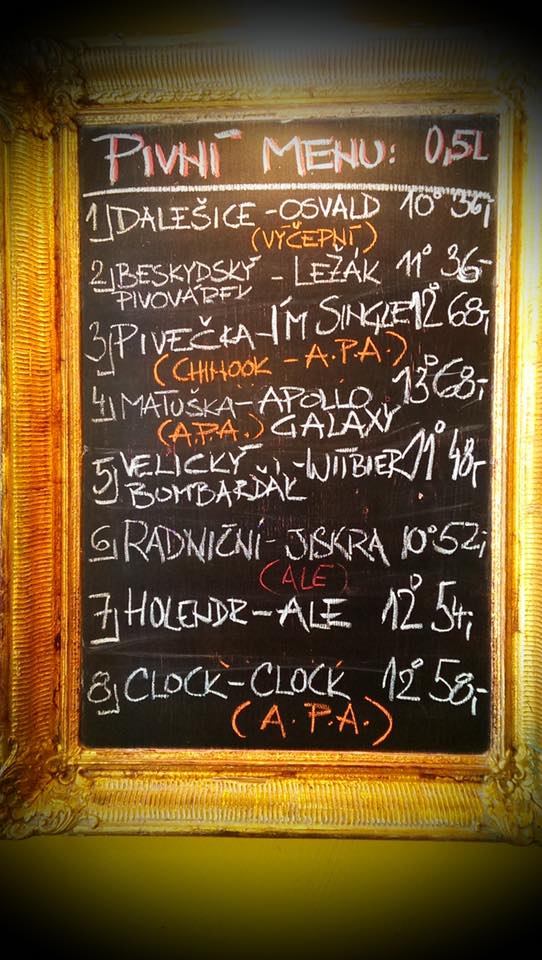 PIVNÍ MENU: 0,5L
1) DALEŠICE - OSVALD 10° 36,-
(VÝČEPNÍ)
2) BESKYDSKÝ - LEŽÁK 11° 36,-
PIVOVÁREK
3) PIVEČKA - I'M SINGLE 12° 68,-
(CHINOOK - A.P.A.)
4) MATUŠKA - APOLLO 13° 68,-
(A.P.A.) GALAXY
5) VELICKÝ - WITBIER 11° 48,-
BOMBARĎÁK
6) RADNIČNÍ - JISKRA 10° 52,-
(ALE)
7) HOLENDR - ALE 12° 54,-
8) CLOCK - CLOCK 12° 58,-
(A.P.A.)